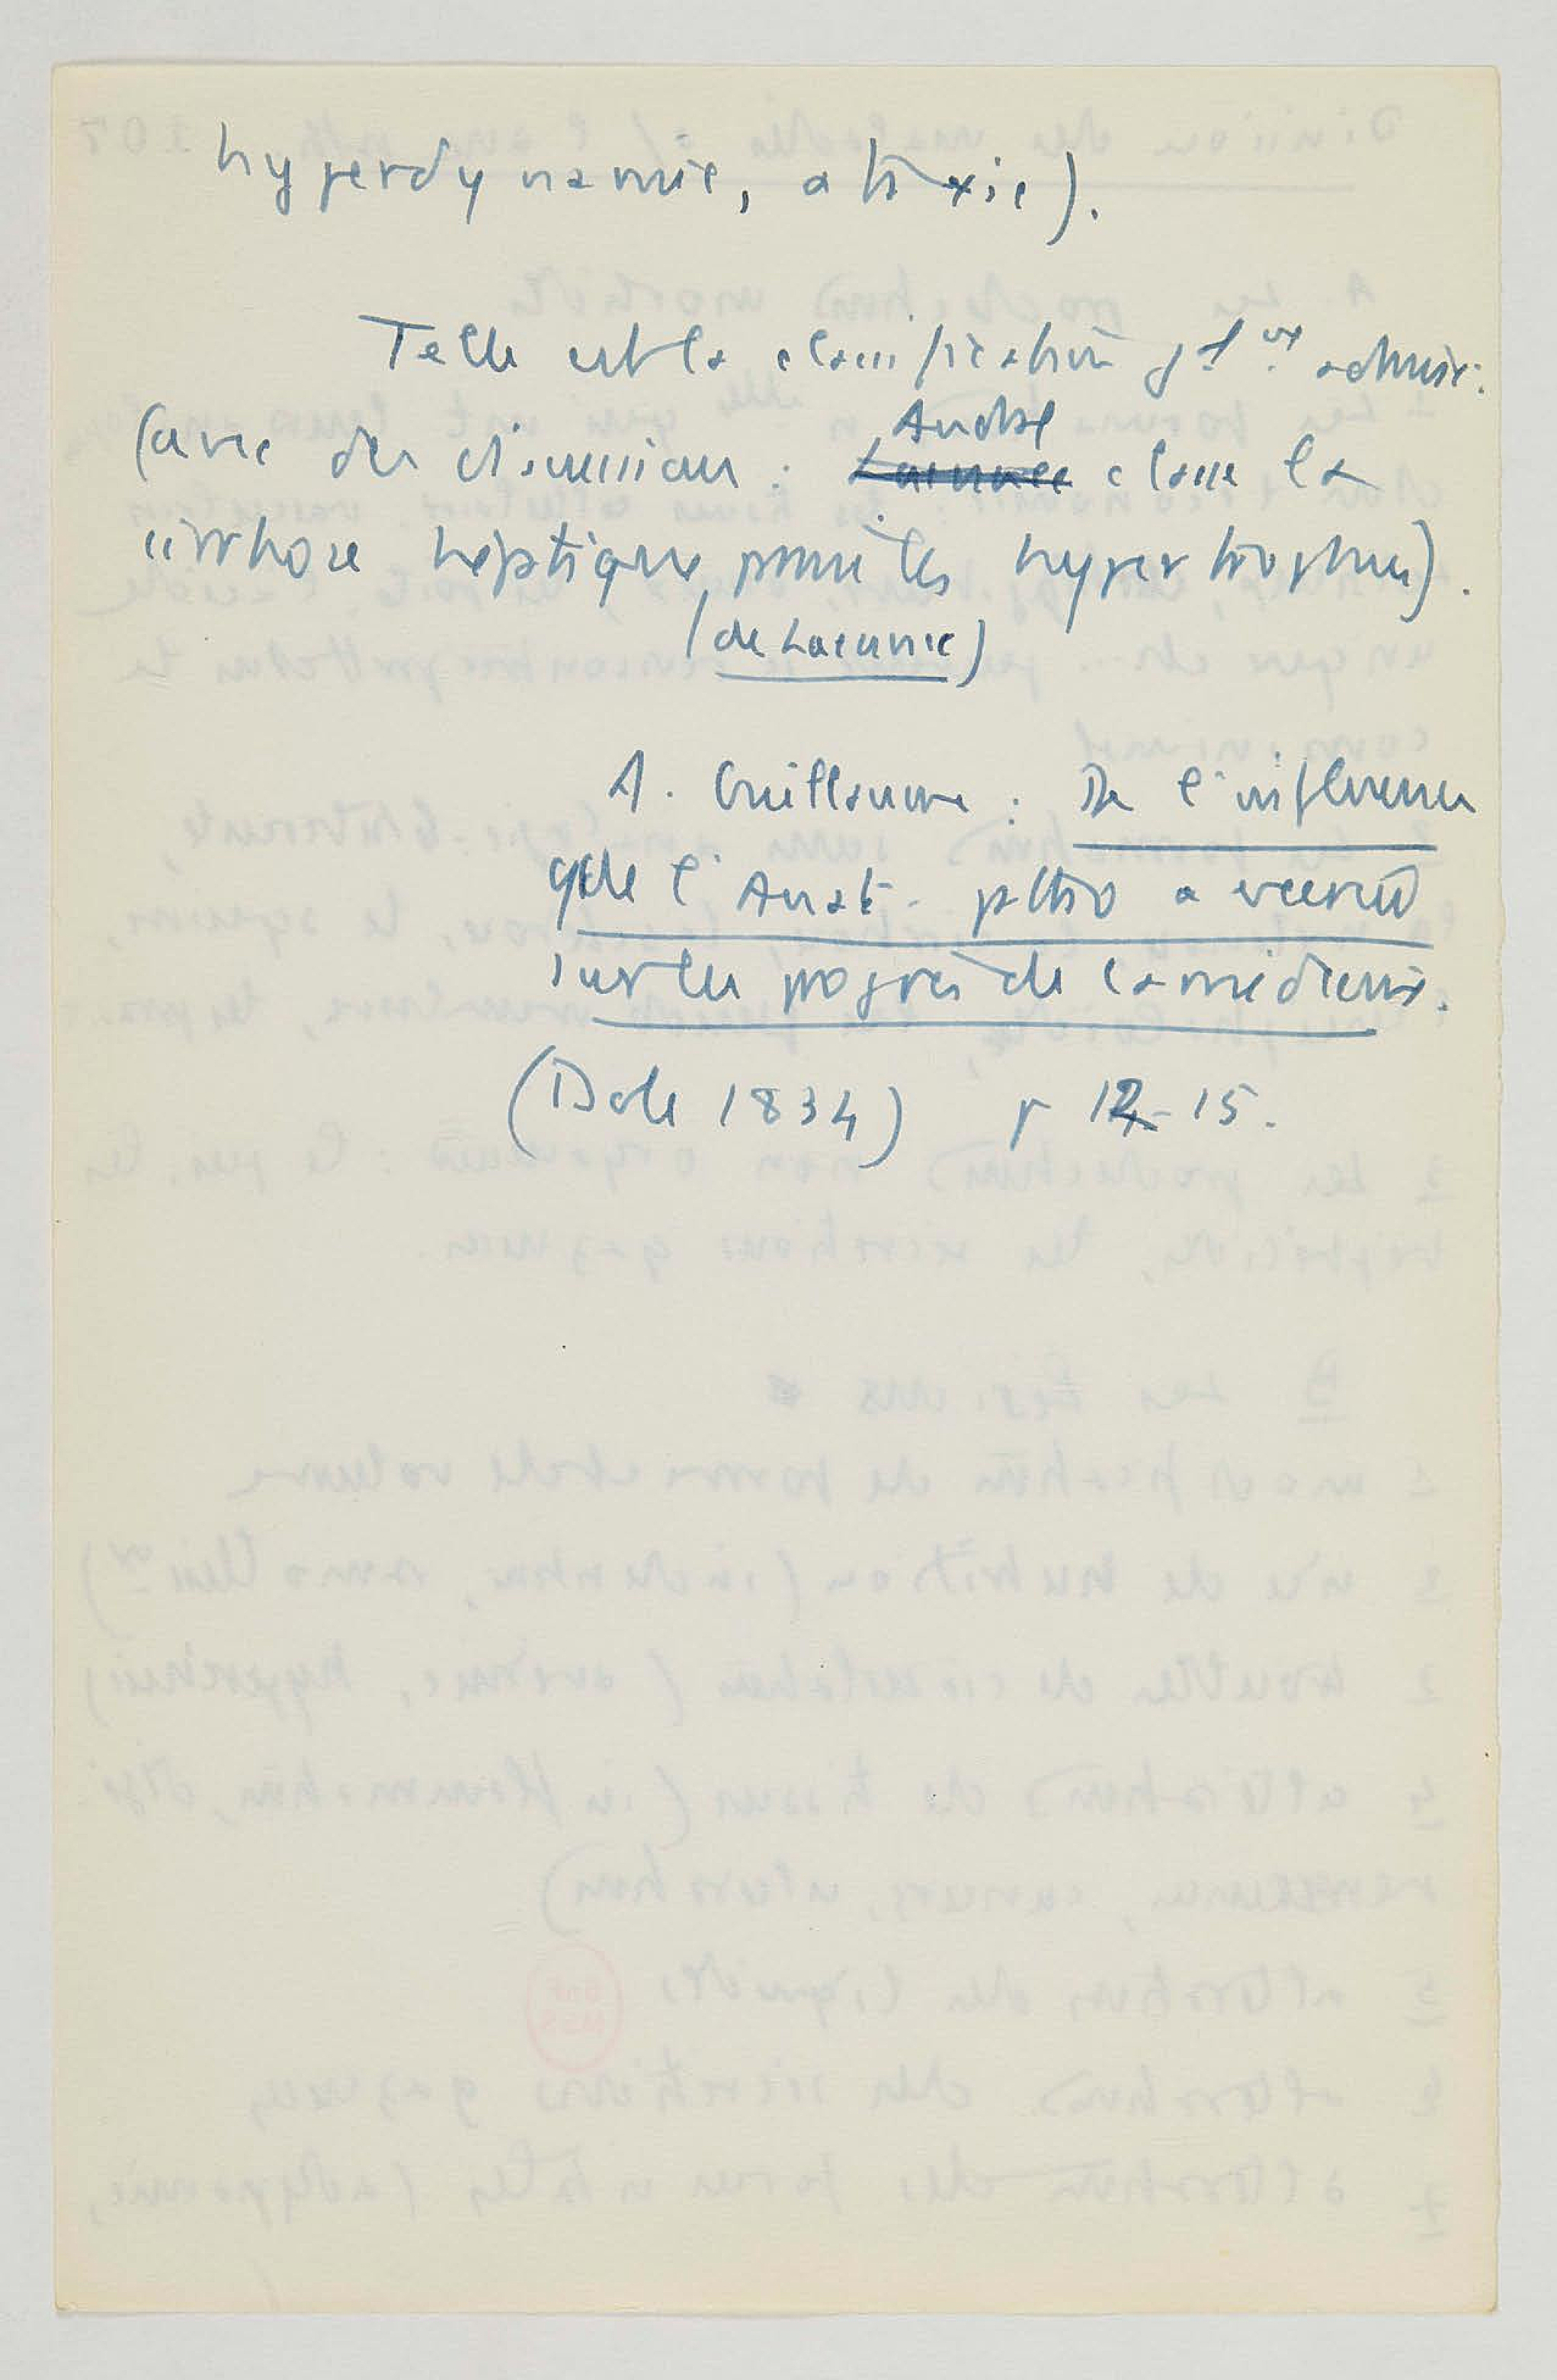 hyperdynamie, ataxie).
Telle est la classification glt admise.
(avec des discussions : Andral
classe la
cirrhose hépatique parmi les hypertrophies).
(de Laennec)
A. Guillaume : De l'influence
que l'Anat. patho a exercée
sur les progrès de la médecine.
(Dole 1834) p 12-15.